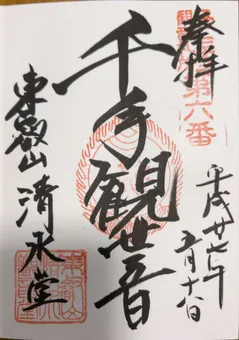 奉拝
第六番
平成廿七年
五月十六日
千手観世音
東叡山清水堂